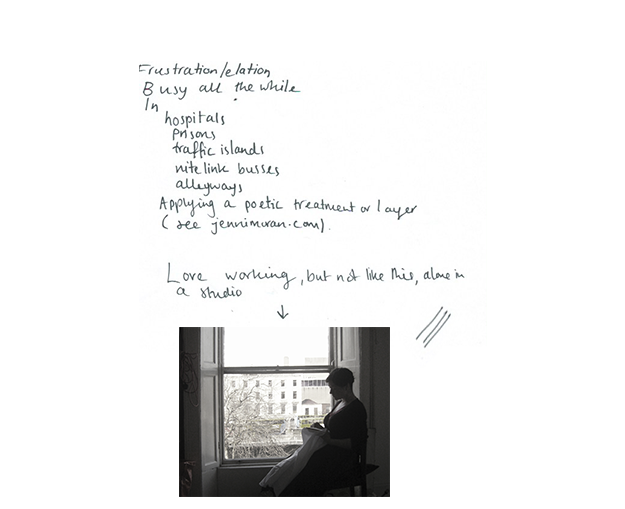 Frustration/elation
Busy all the while
In
hospitals
prisons
traffic islands
nitelink busses
alleyways
Applying a poetic treatment or layer
(see jennimoran.com).
Love working, but not like this, alone in
a studio